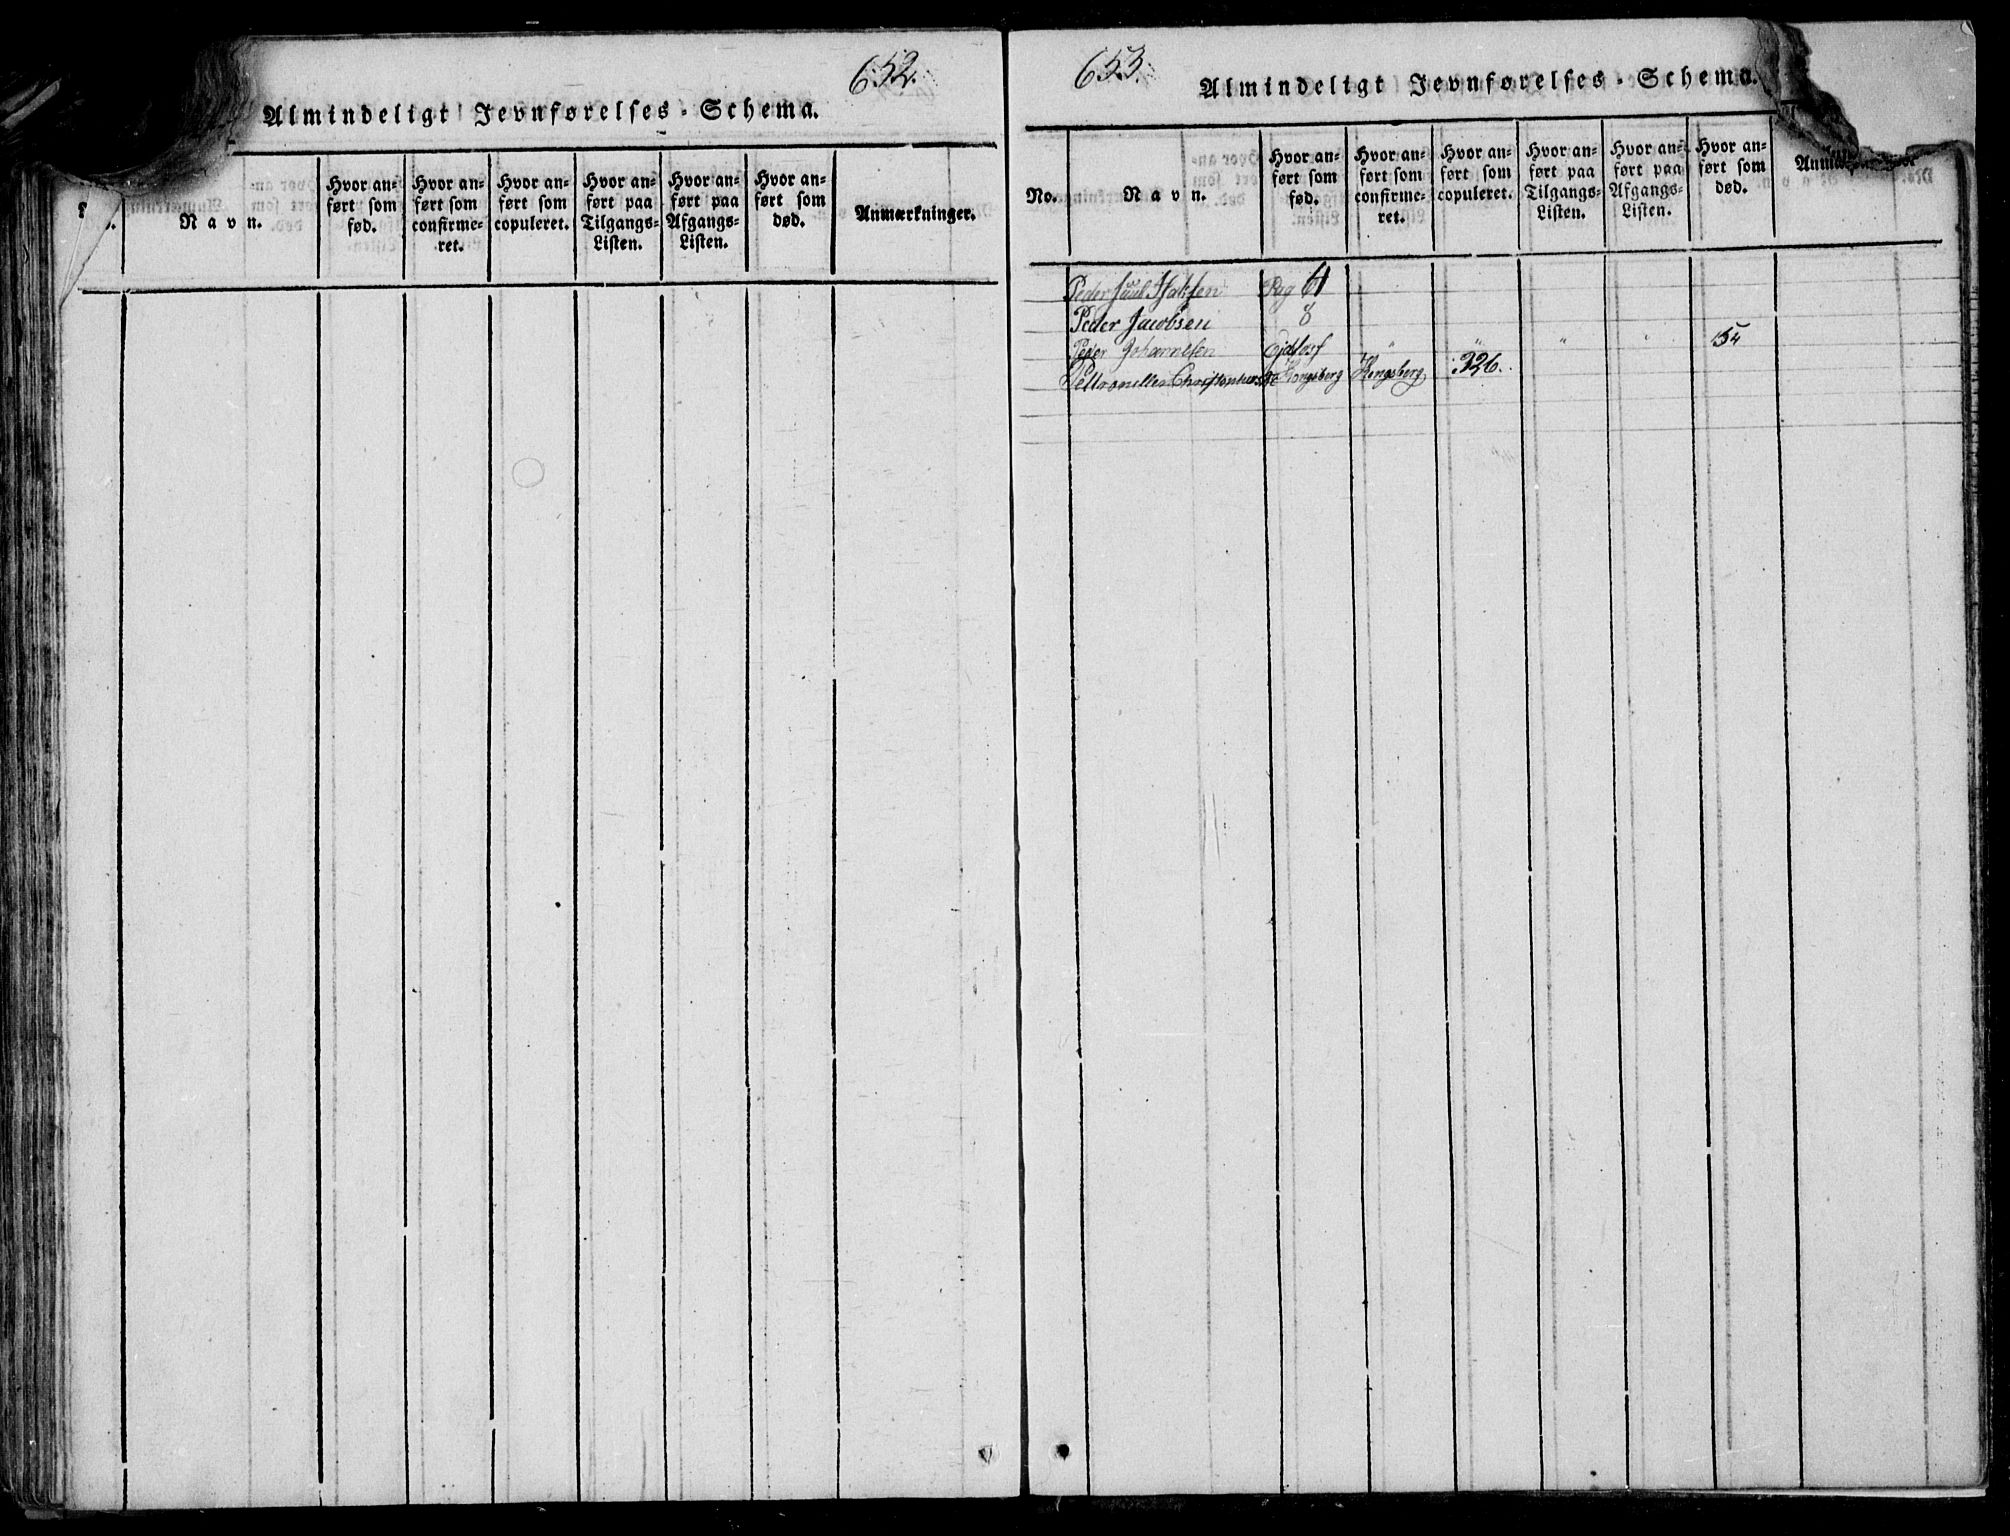 652.
Almindeligt Jevnførelses-Schema.
Navn.
Hvor an-
ført som
fød.
Hvor an-
ført som
confirme-
ret.
Hvor an-
ført som
copuleret.
Hvor an-
ført paa
Tilgangs-
Listen.
Hvor an-
ført paa
Afgangs-
Listen.
Hvor an-
ført som
død.
Anmærkninger.
653.
Almindeligt Jevnførelses-Schema.
No.
Navn.
Hvor an-
ført som
fød.
Hvor an-
ført som
confirme-
ret.
Hvor an-
ført som
copuleret.
Hvor an-
ført paa
Tilgangs-
Listen.
Hvor an-
ført paa
Afgangs-
Listen.
Hvor an-
ført som
død.
Peder Juul Pag 61
Peder Jacobsen 8
Peder Johannesen " " " " 154
Kongsberg Kongsberg 326.